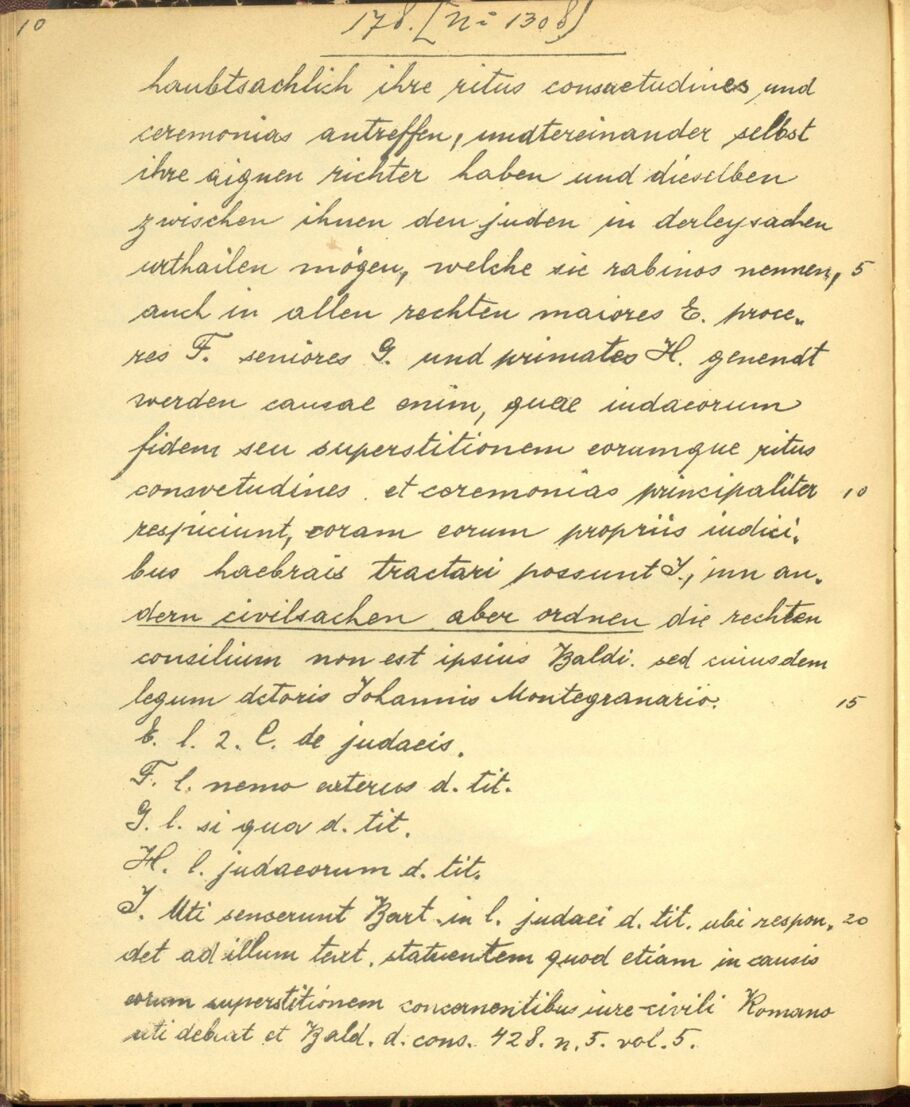 10 178. [No 1308]
haubtsachlich ihre ritus consvetudines und
ceremonias antreffen, undtereinander selbst
ihre aignen richter haben und dieselben
zwischen ihnen den juden in derleysachen
urthailen mögen, welche sie rabinos nennen, 5
auch in allen rechten maiores E. proce„
res F. seniores G. und primates H. genendt
werden causae enim, quae iudaeorum
fidem seu superstitionem eorumque ritus
consvetudines et ceremonias principaliter 10
respiciunt, coram eorum propriis iudici„
bus haebrais tractari possunt I., inn an„
dern civilsachen aber ordnen die rechten
consilium non est ipsius Baldi. sed cuiusdem
legum dctoris Johannis Montegranario. 15
E. l. 2. C. de judaeis.
F. l. nemo exterus d. tit.
G. l. si qua d. tit.
H. l. judaeorum d. tit.
I. Uti senserunt Bart. in l. judaei d. tit. ubi respon„ 20
det ad illum text. statuentem quod etiam in causis
eorum superstitionem concernentibus iure civili Romano
uti debeat et Bald. d. cons. 428. n. 5. vol. 5.